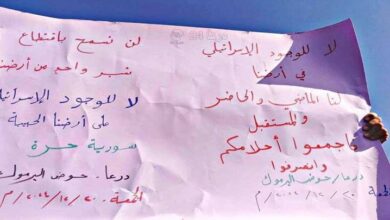 لا للوجود الإسرائيلي
في أرضنا
لنا الماضي والحاضر
والمستقبل
واجمعوا أحلامكم
وانصرفوا
درعا / حوض اليرموك
الجمعة ٢٠ / ١٢ / ٢٠٢٤ م
لن نسمح باقتطاع
شبر واحد من أرضنا
لا للوجود الإسرائيلي
على أرضنا الحبيبة
سورية حرة
درعا. حوض اليرموك
الجمعة ٢٠ / ١٢ / ٢٠٢٤ م